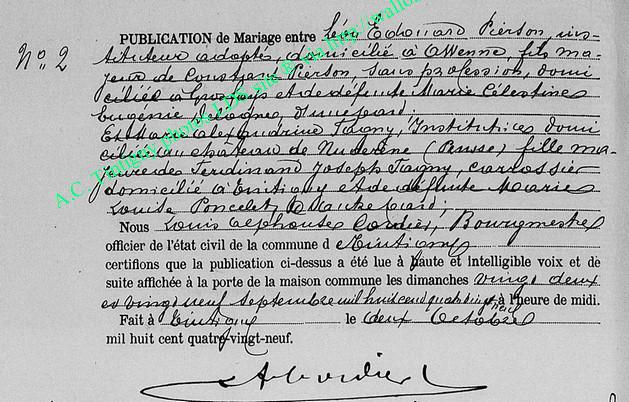 N° 2
PUBLICATION de Mariage entre Léon Edouard Pierson, ins-
tituteur adopté, domicilié à Awenne, fils ma-
jeur de Constant Pierson, sans profession, domi
cilié à et de défunte Marie Célestine
Eugénie d'une part.
Et Marie Alexandrine Tagny, Institutrice, domi
ciliée au château de (Prusse) fille ma-
jeure de Ferdinand Joseph Tagny, carrossier
domicilié à Tintigny et de défunte Marie
Louise Poncelet, d'autre part;
Nous Louis Alphonse Cordier, Bourgmestre
officier de l'état civil de la commune d e Tintigny
certifions que la publication ci-dessus a été lue à haute et intelligible voix et de
suite affichée à la porte de la maison commune les dimanches vingt deux
et vingt neuf septembre mil huit cent quatre vingt neuf à l'heure de midi.
Fait à Tintigny le deux Octobre
mil huit cent quatre-vingt-neuf.
A Cordier
A.C. Tintigny photo LDS site via http://